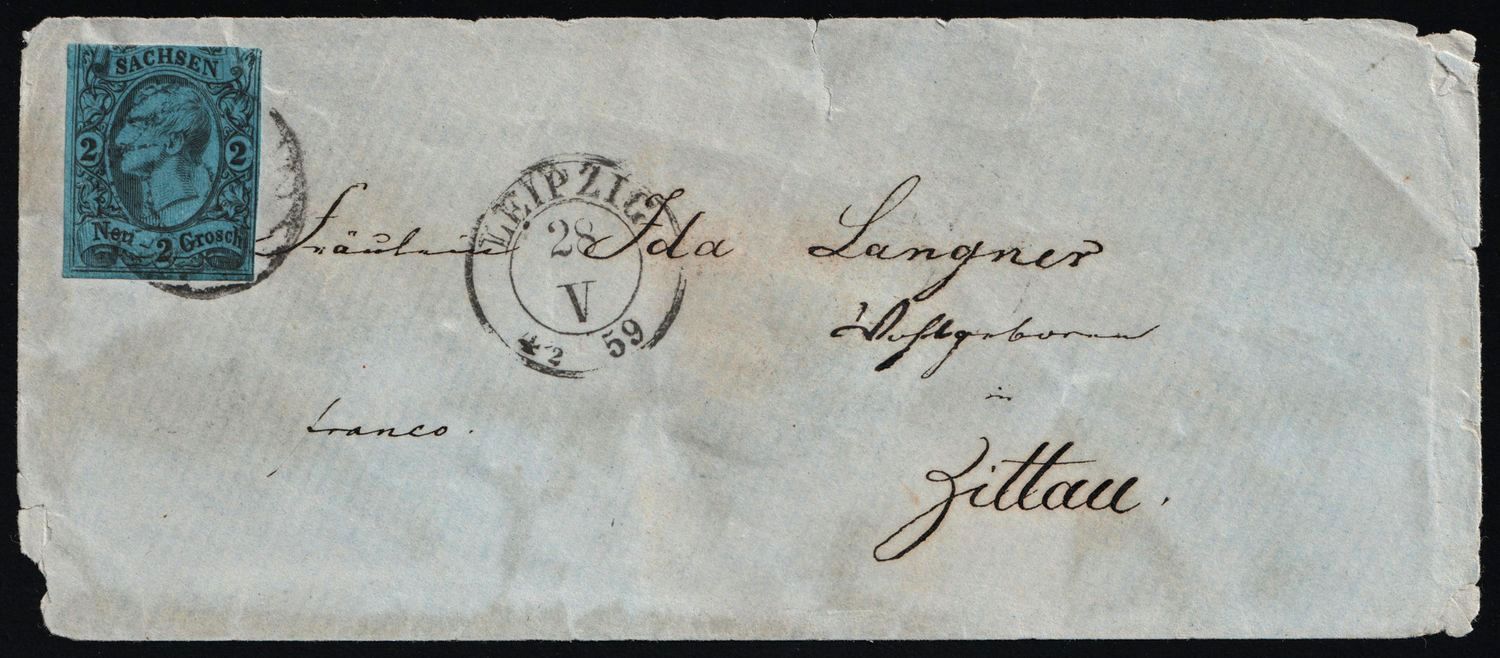 SACHSEN
2 2
Neu 2 Grosch
LEIPZIG
28
V
4 2 59
Fräulein Ida Langner
Wohlgeboren
in
franco.
Zittau.